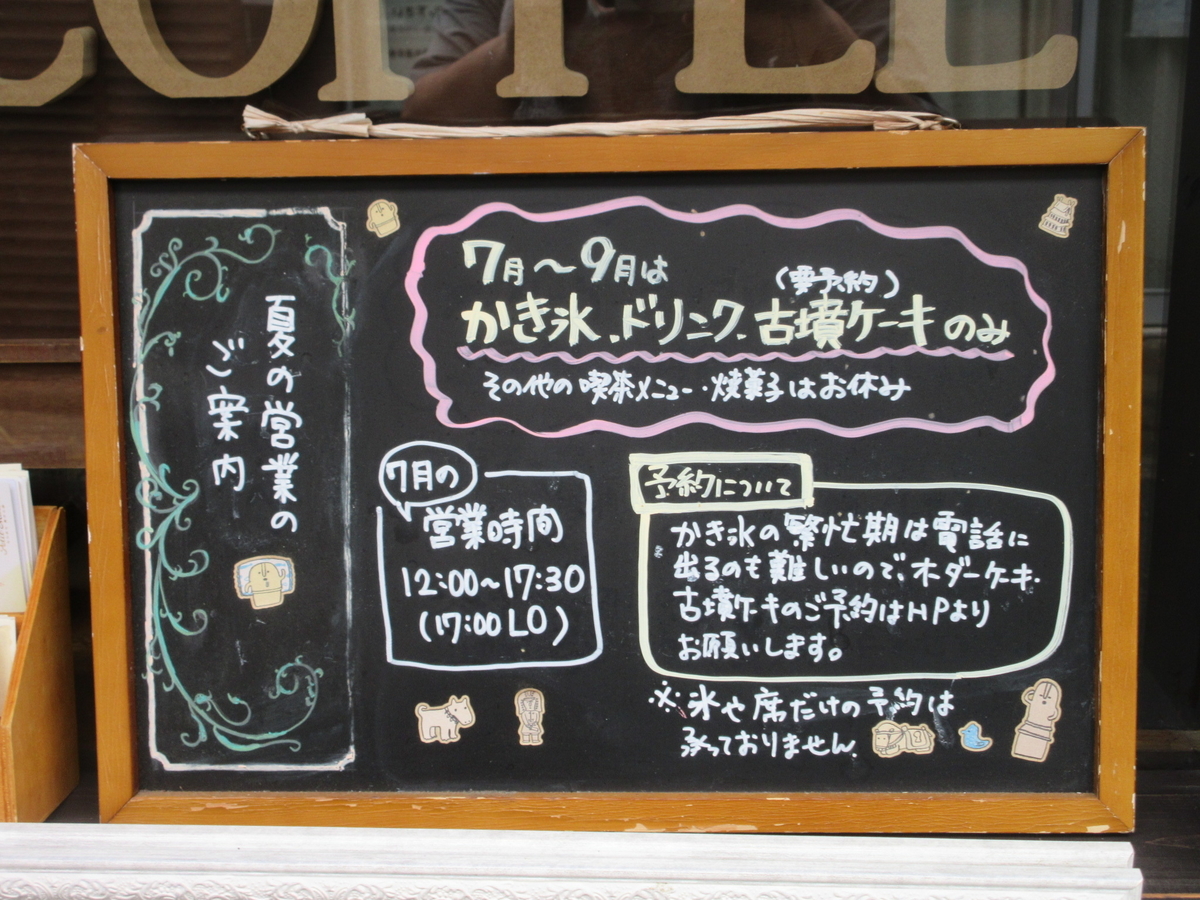 COFFEE
夏の営業の
ご案内
7月～9月は
(要予約)
かき氷、ドリンク、古墳ケーキのみ
その他の喫茶メニュー・焼菓子はお休み
7月の
営業時間
12:00～17:30
(17:00 LO)
予約について
かき氷の繁忙期は電話に
出るのも難しいので、オーダーケーキ・
古墳ケーキのご予約はHPより
お願いします。
※氷や席だけの予約は
承っておりません。